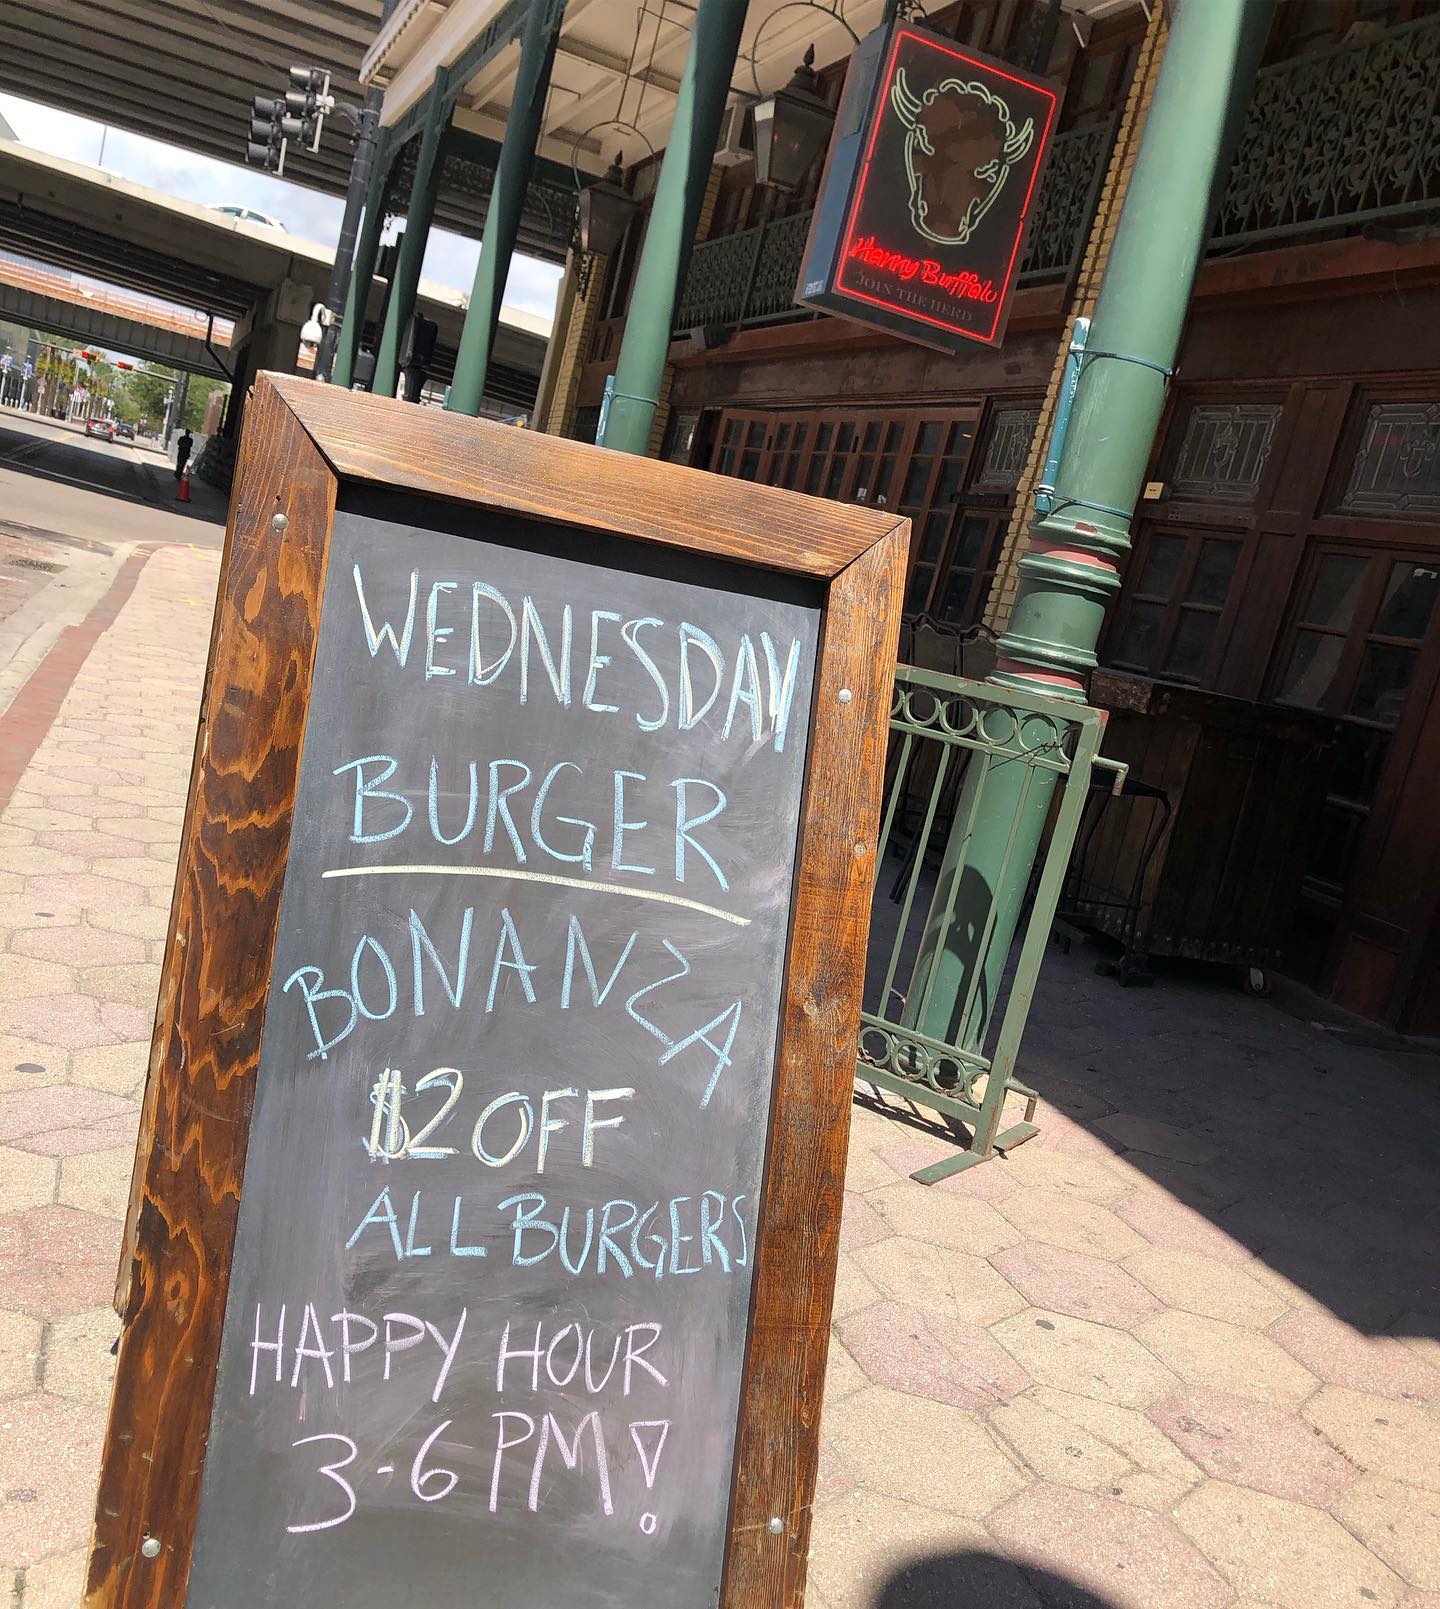 Henry Buffalo
JOIN THE HERD
WEDNESDAY
BURGER
BONANZA
$2 OFF
ALL BURGERS
HAPPY HOUR
3-6 PM!